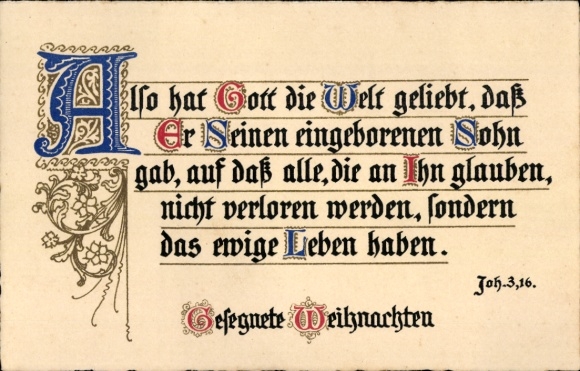 Also hat Gott die Welt geliebt, daß
Er Seinen eingeborenen Sohn
gab, auf daß alle, die an Ihn glauben,
nicht verloren werden, sondern
das ewige Leben haben.
Joh. 3,16.
Gesegnete Weihnachten